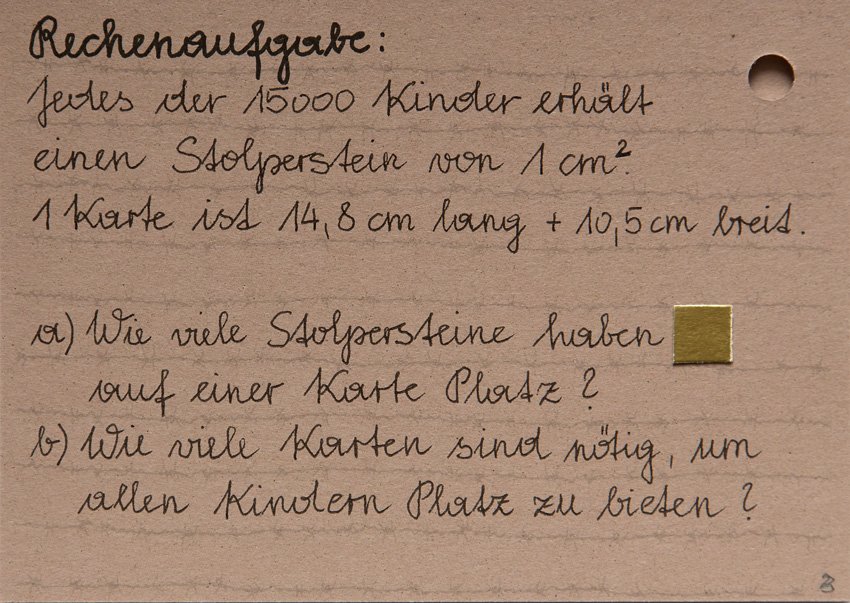 Rechenaufgabe:
Jedes der 15000 Kinder erhält
einen Stolperstein von 1 cm².
1 Karte ist 14,8 cm lang + 10,5 cm breit.
a) Wie viele Stolpersteine haben
auf einer Karte Platz?
b) Wie viele Karten sind nötig, um
allen Kindern Platz zu bieten?